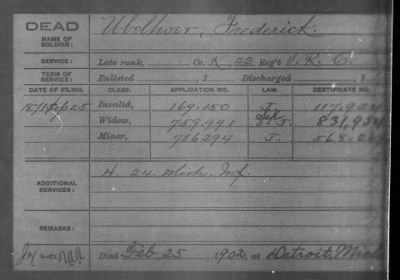 DEAD
NAME OF SOLDIER: Ubelhoer, Frederick.
SERVICE: Late rank, Co. K, 22 Reg't V. R. C.
TERM OF SERVICE: Enlisted , 1 Discharged , 1
DATE OF FILING. CLASS. APPLICATION NO. LAW. CERTIFICATE NO.
1871 Sep 25 Invalid, 169.150 J. 117.924
Widow, 759.991 831,954
Minor, 786294 J. 568.
ADDITIONAL SERVICES: H. 24. Mich. Inf.
REMARKS:
Died Feb. 25 1902, at Detroit, Mich